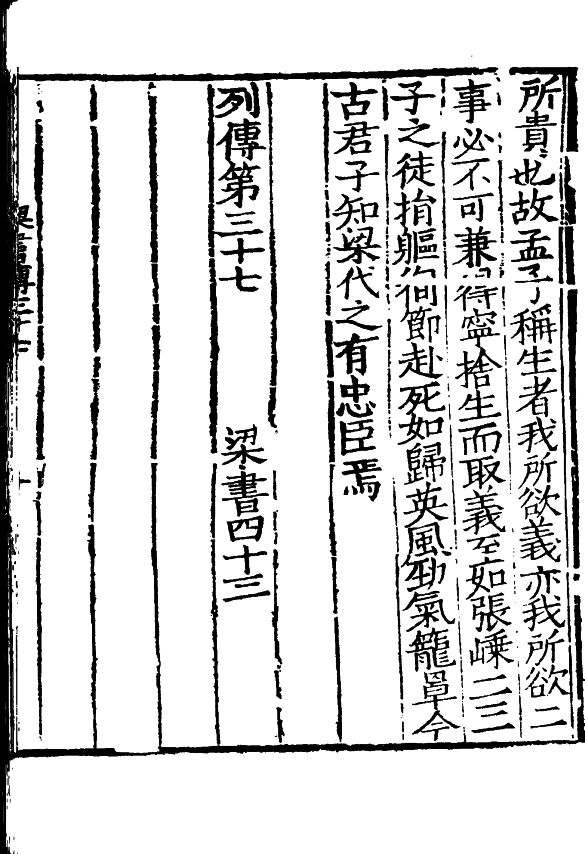 所貴也故孟子稱生者我所欲義亦我所欲二
事必不可兼得寧捨生而取義至如張嵊二三
子之徒捐軀徇節赴死如歸英風勁氣籠罩今
古君子知梁代之有忠臣焉
列傳第三十七 梁書四十三
梁書傳三十七 十